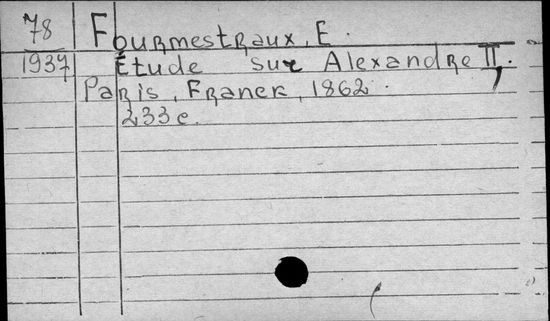 78 Fourmestraux, E.
1937 Étude sur Alexandre II.
Paris, Franck, 1862.
233 c.